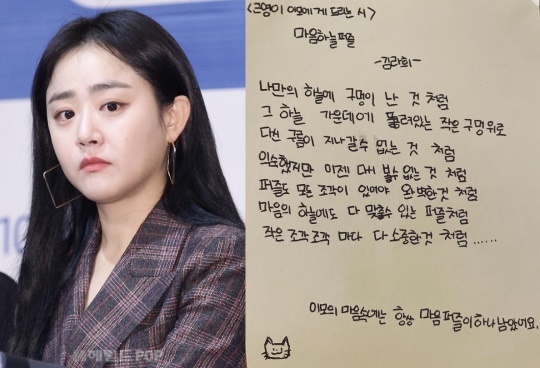 <근영이 이모에게 드리는 시>
마음하늘퍼즐
-김라희-
나만의 하늘에 구멍이 난 것 처럼
그 하늘 가운데에 뚫려있는 작은 구멍위로
다신 구름이 지나갈수 없는 것 처럼
익숙했지만 이젠 다시 볼수 없는 것 처럼
퍼즐도 모든 조각이 있어야 완벽한것 처럼
마음의 하늘에도 다 맞출수 있는 퍼즐처럼
작은 조각조각 마다 다 소중한것 처럼......
이모의 마음속에는 항상 마음퍼즐이 하나 남았어요.
헤럴드POP
10